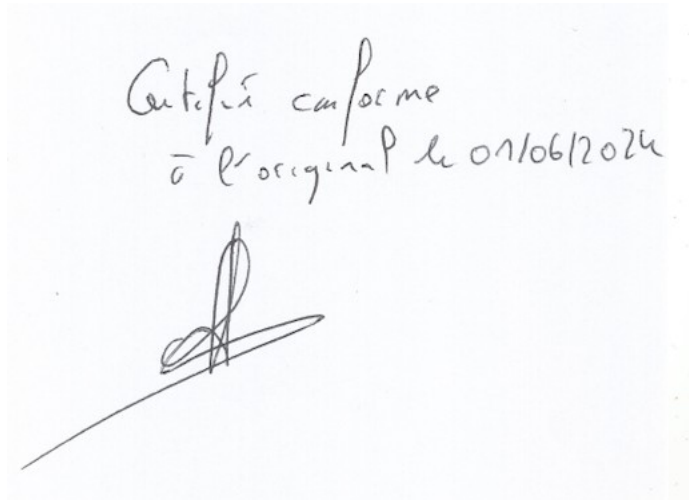 Certifié conforme
à l'original le 01/06/2024